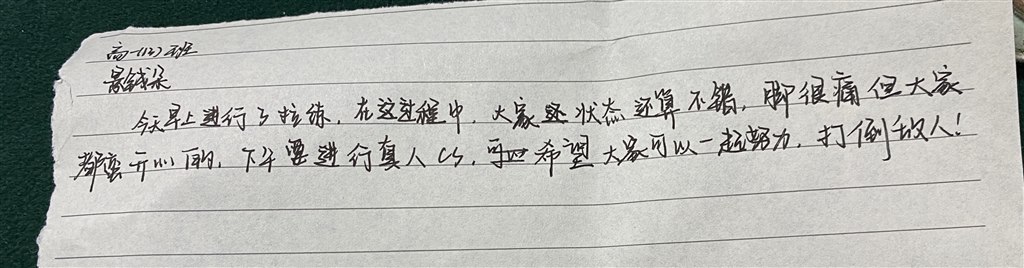 高一(3)班
景钱朵
今天早上进行了拉练，在这过程中，大家状态还算不错，脚很痛但大家
都蛮开心的，下午要进行真人CS，希望大家可以一起努力，打倒敌人！